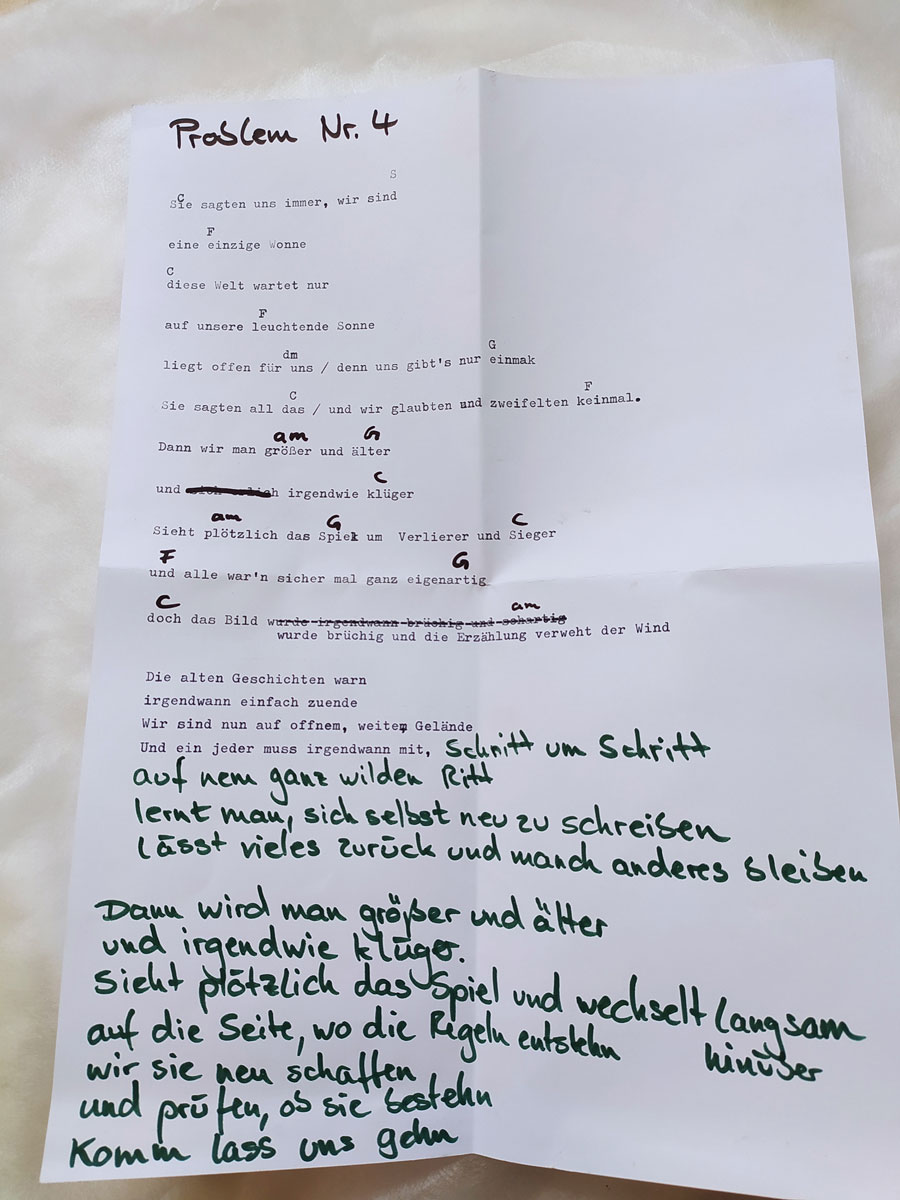 Problem Nr. 4
S
C
Sie sagten uns immer, wir sind
F
eine einzige Wonne
C
diese Welt wartet nur
F
auf unsere leuchtende Sonne
dm G
liegt offen für uns / denn uns gibt's nur einmak
C F
Sie sagten all das / und wir glaubten und zweifelten keinmal.
am G
Dann wir man größer und älter
C
und irgendwie klüger
am G C
Sieht plötzlich das Spiel um Verlierer und Sieger
F G
und alle war'n sicher mal ganz eigenartig
C am
doch das Bild wurde irgendwann brüchig und schartig
wurde brüchig und die Erzählung verweht der Wind
Die alten Geschichten warn
irgendwann einfach zuende
Wir sind nun auf offnem, weitem Gelände
Und ein jeder muss irgendwann mit, Schritt um Schritt
auf nem ganz wilden Ritt
lernt man, sich selbst neu zu schreiben
lässt vieles zurück und manch anderes bleiben
Dann wird man größer und älter
und irgendwie klüger.
Sieht plötzlich das Spiel und wechselt langsam
hinüber
auf die Seite, wo die Regeln entstehn
wir sie neu schaffen
und prüfen, ob sie bestehn
Komm lass uns gehn